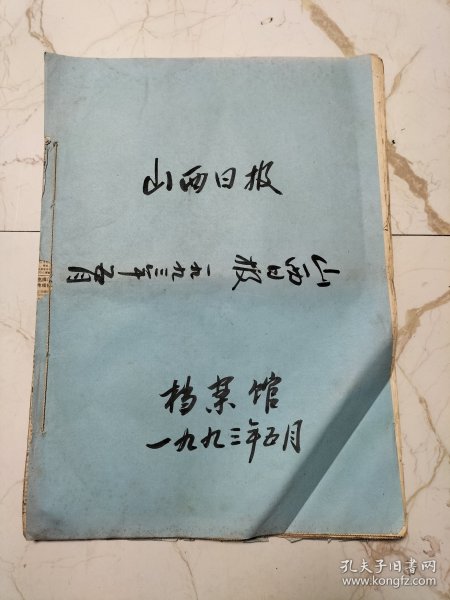 山西日报
山西日报 一九九三年五月
档案馆
一九九三年五月
孔夫子旧书网
www.kongfz.com